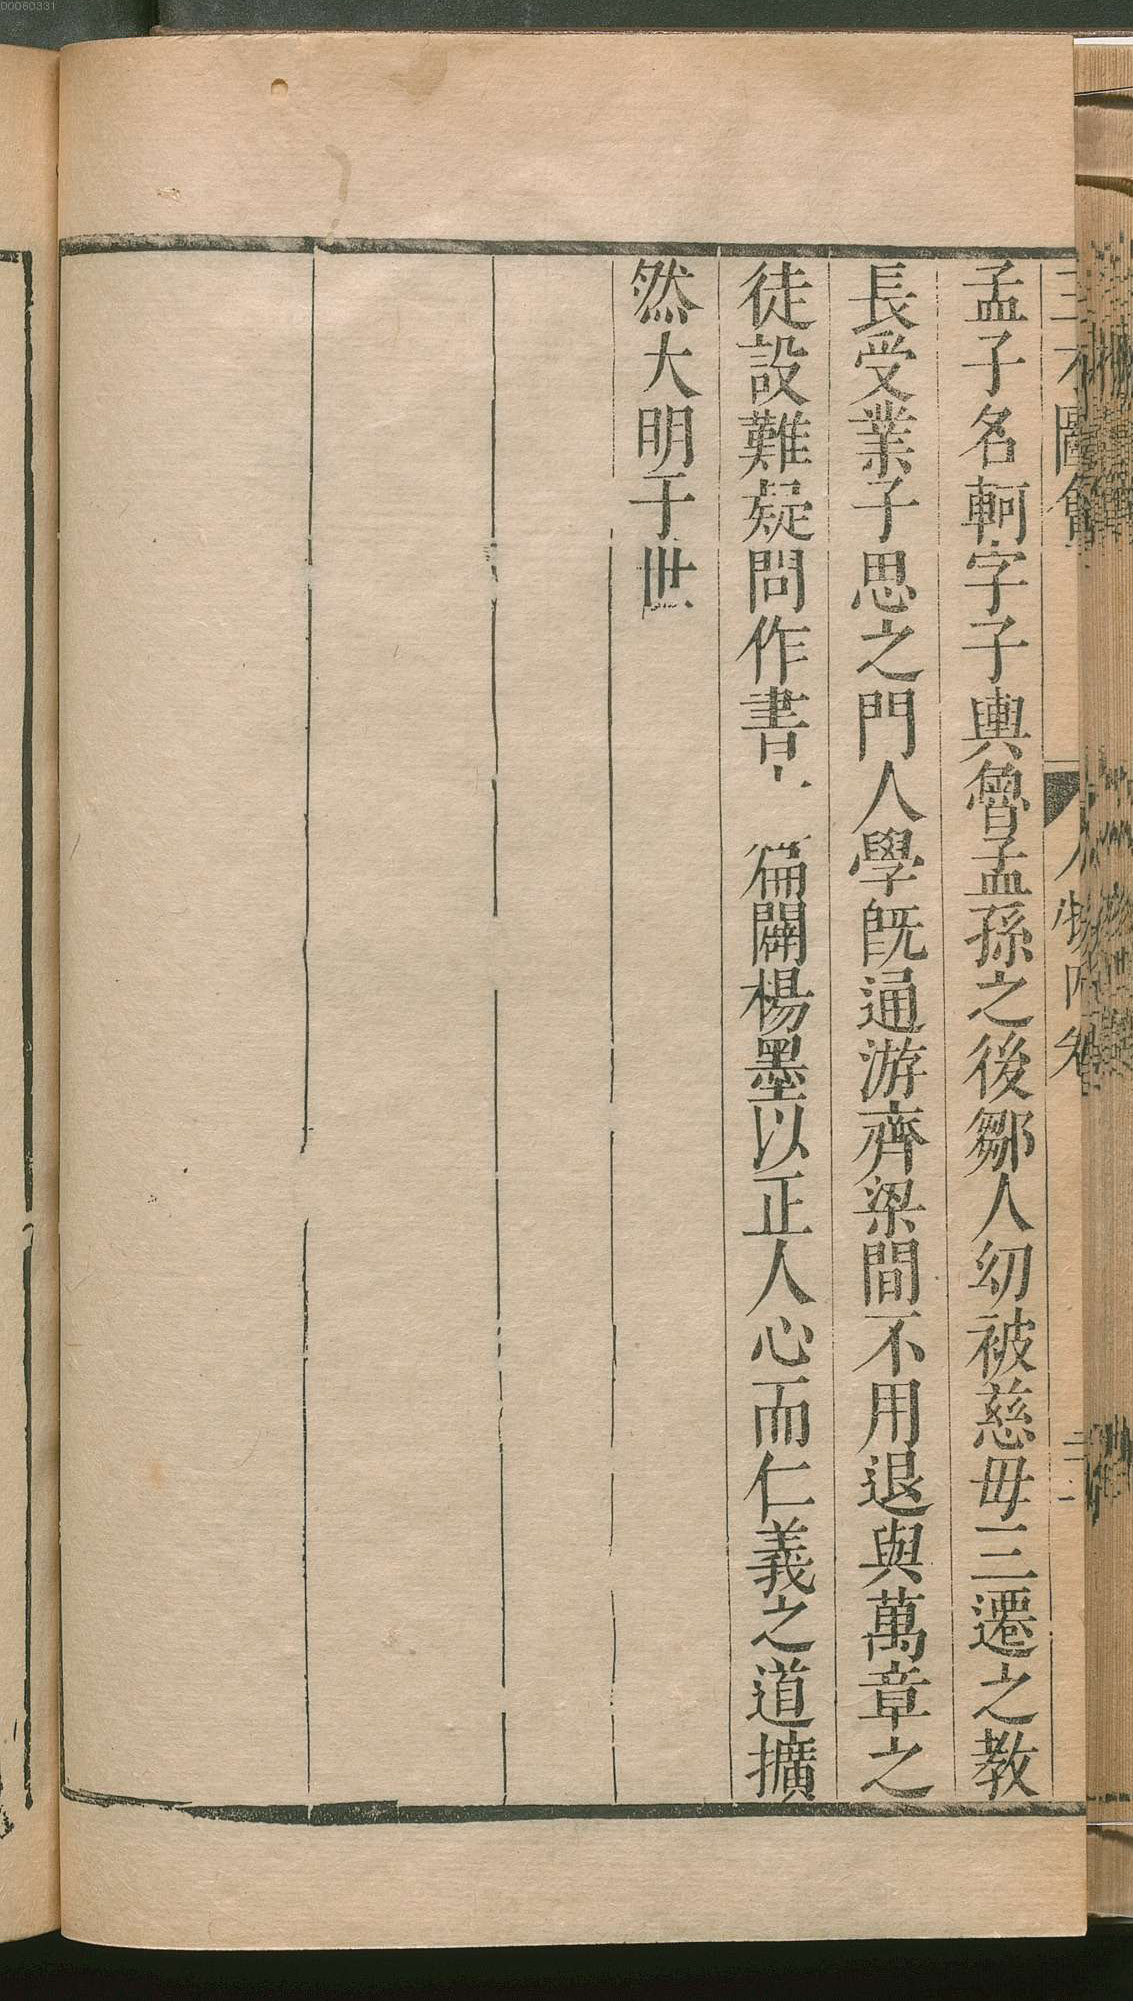 孟子名軻字子輿魯孟孫之後鄒人幼被慈毋三遷之教
長受業子思之門人學既通游齊梁間不用退與萬章之
徒設難疑問作書 篇闢楊墨以正人心而仁義之道擴
然大明于世
00060331